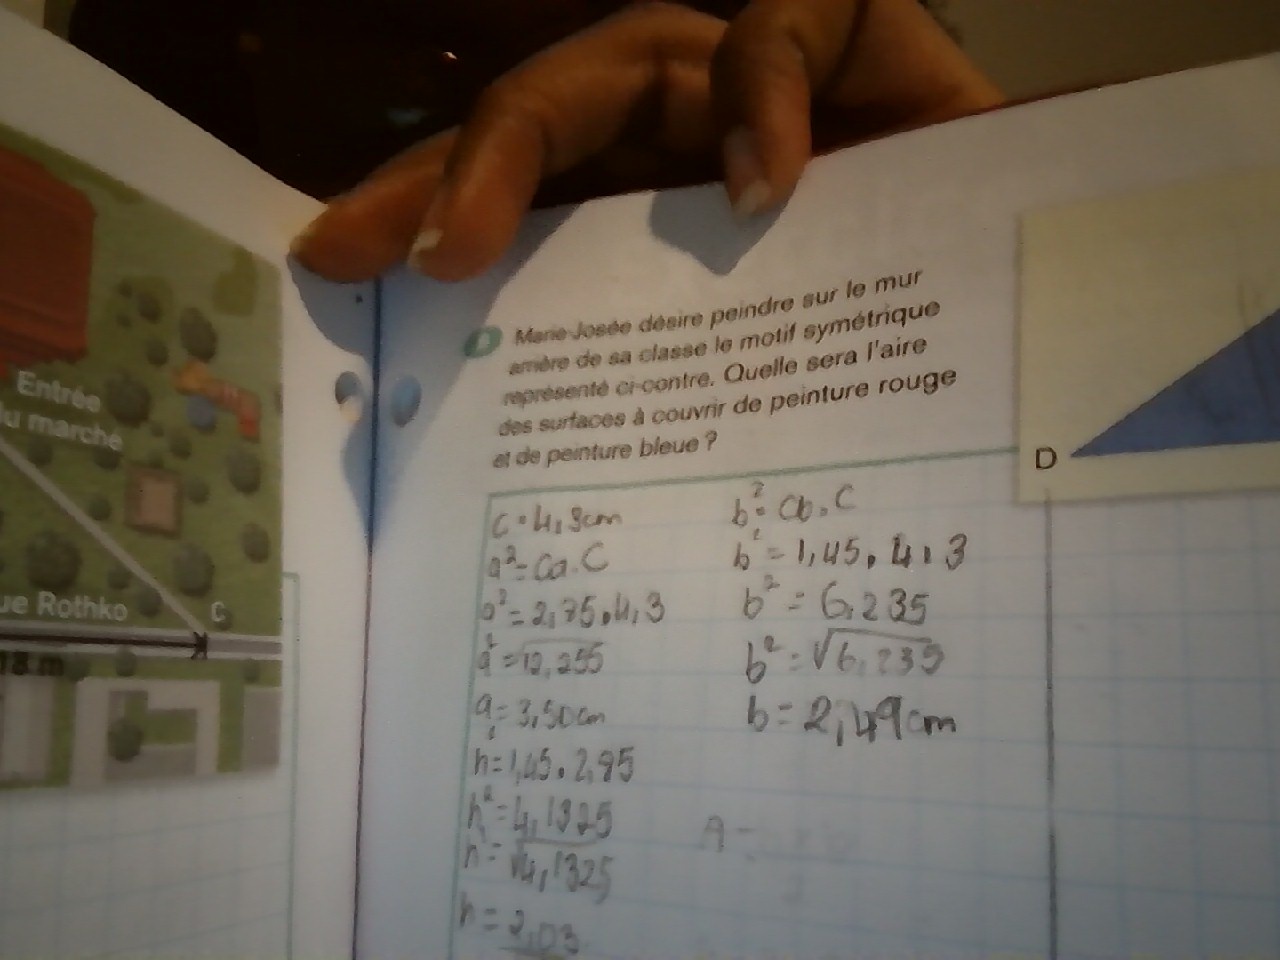 Entrée
du marché
ue Rothko
C
18 m
Marie-Josée désire peindre sur le mur
arrière de sa classe le motif symétrique
représenté ci-contre. Quelle sera l'aire
des surfaces à couvrir de peinture rouge
et de peinture bleue ?
D
a² = Ca.C
a² = 12,255
a = 3,50 cm
h² = 4,1325
h = √4,1325
h = 2,03
b² = Cb.C
b² = 1,45.4,3
b² = 6,235
b² = √6,235
b = 2,49 cm
A =